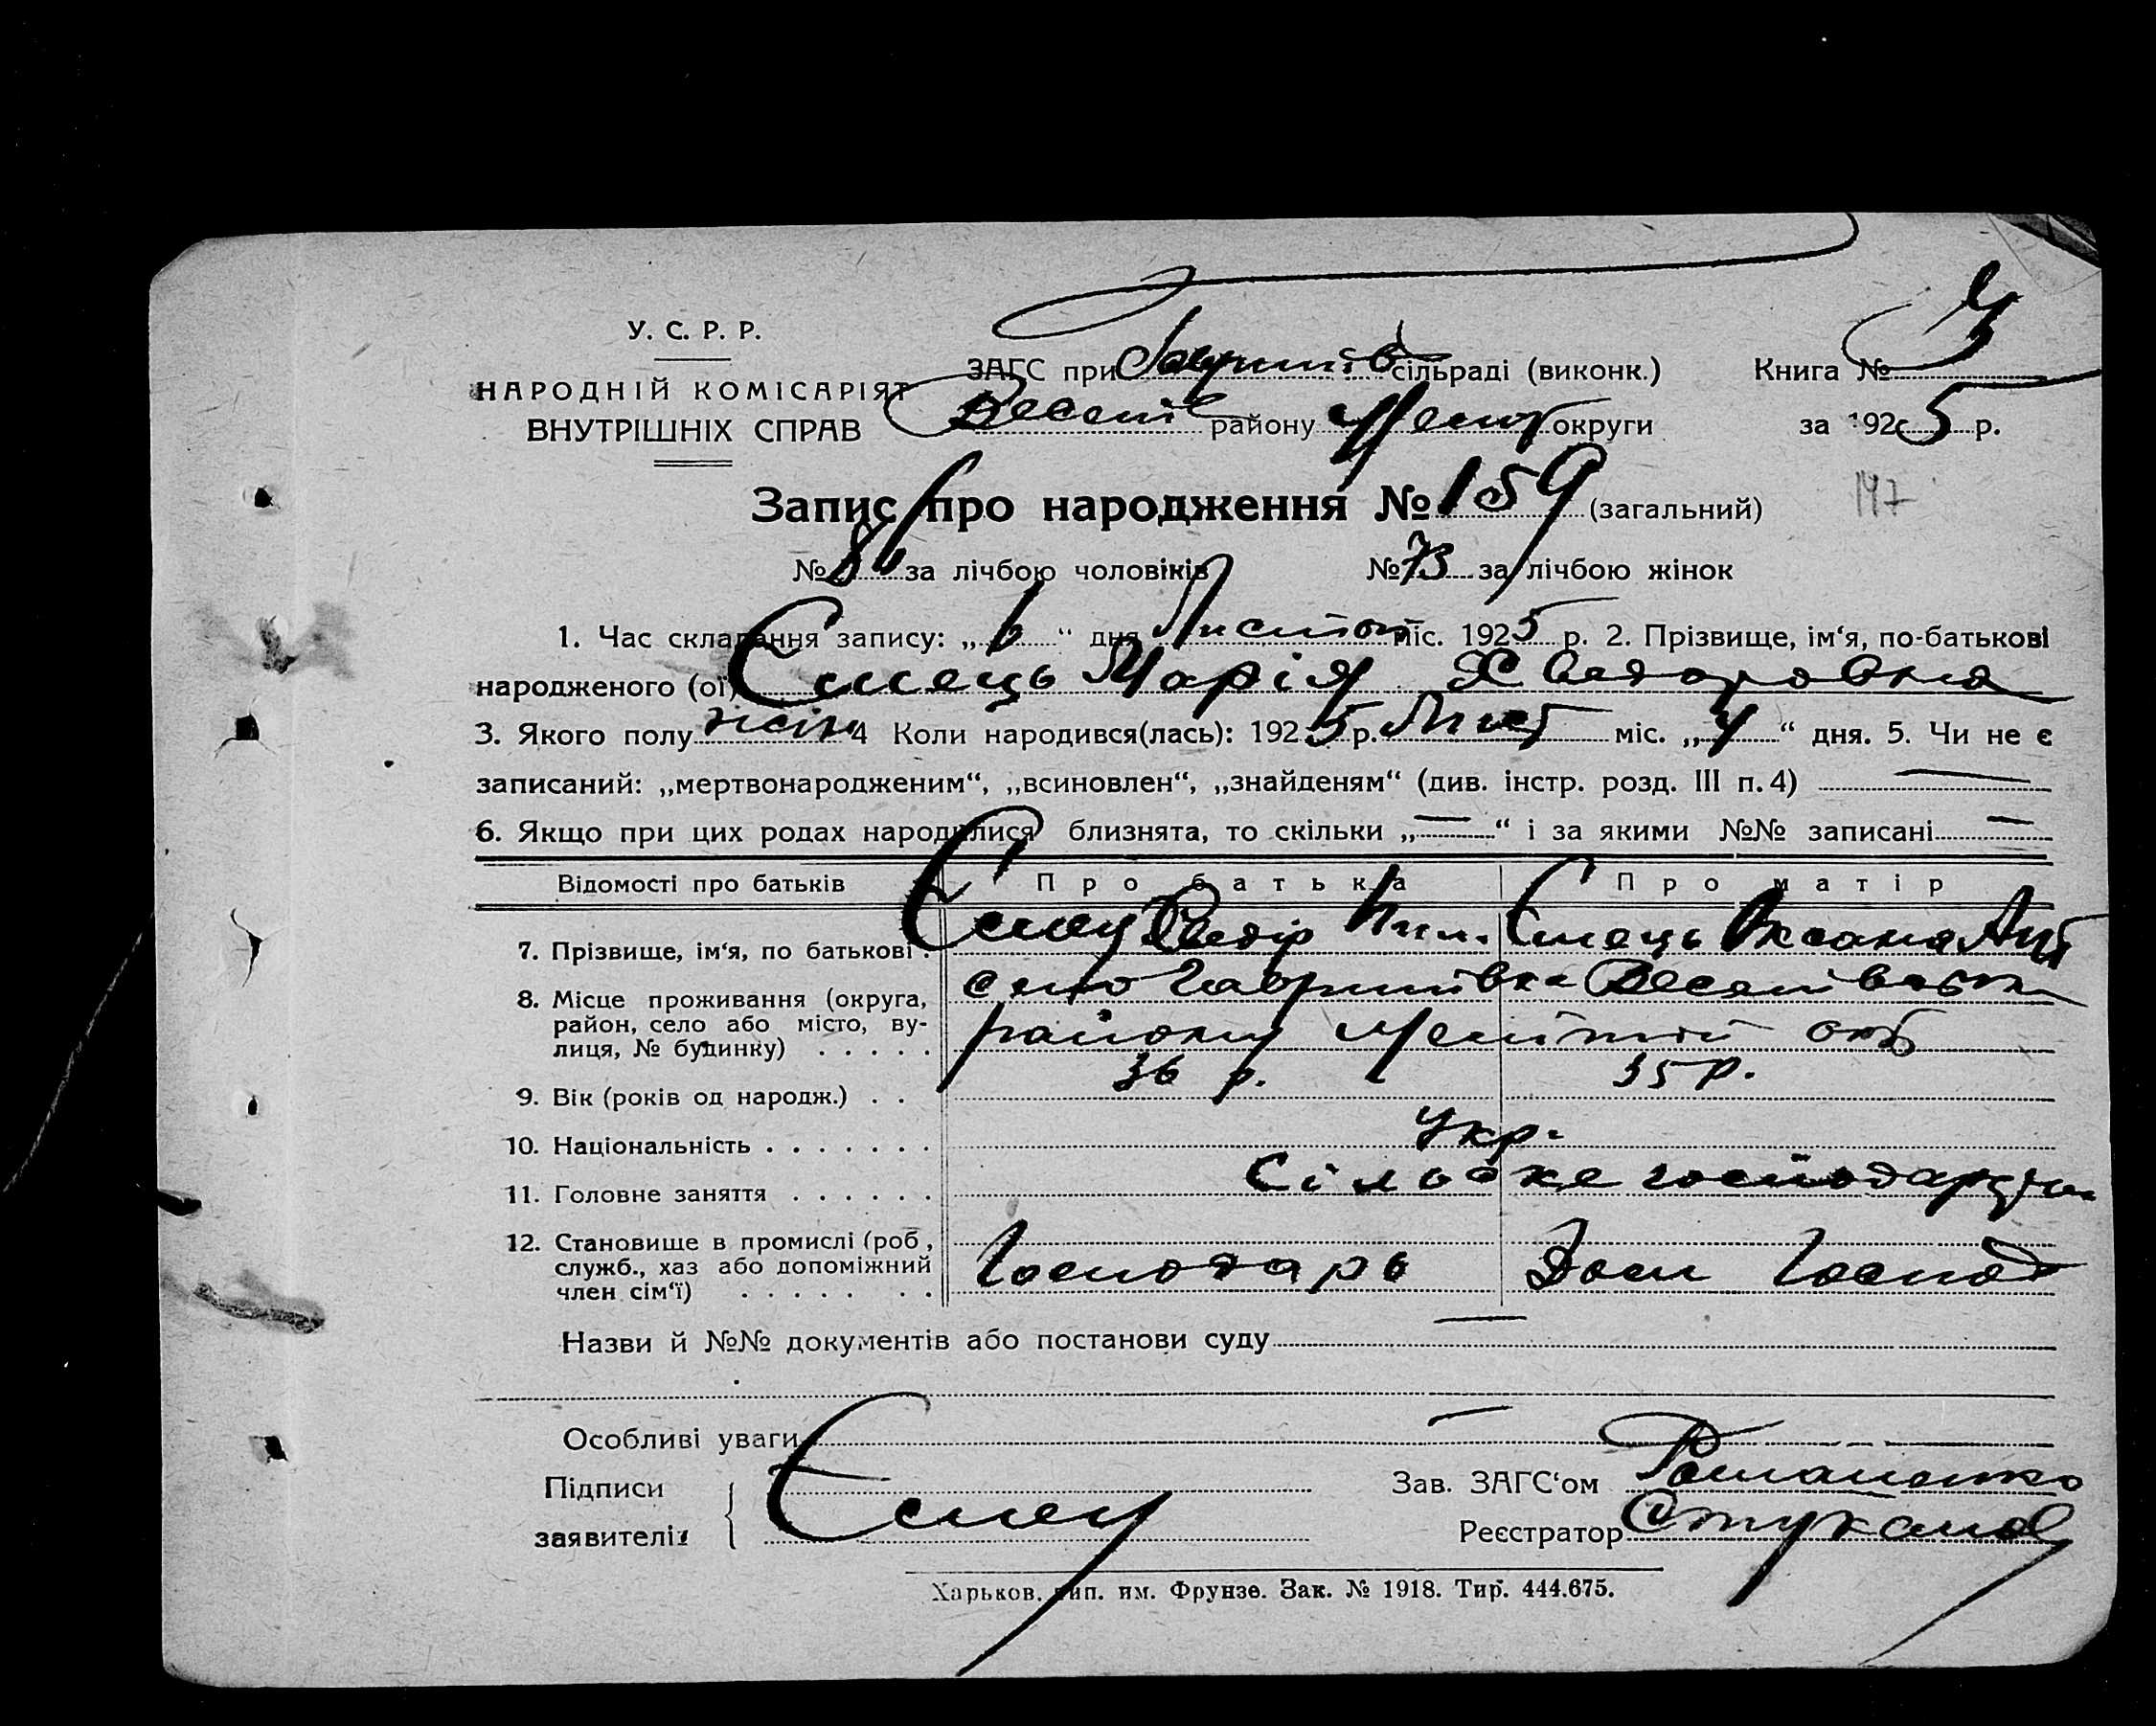 У. С. Р. Р.
НАРОДНІЙ КОМІСАРІЯТ
ВНУТРІШНІХ СПРАВ
ЗАГС при сільраді (виконк.)
району округи
Книга №
за 1925 р.
Запис про народження № 159 (загальний)
147
№ 86 за лічбою чоловіків № 73 за лічбою жінок
1. Час складання запису: „6“ дня Листоп міс. 1925 р. 2. Прізвище, ім‘я, по-батькові
народженого (ої) Ємець Марія Хведоровна
3. Якого полу жін 4 Коли народився(лась): 1925 р. Лист міс. „4“ дня. 5. Чи не є
записаний: „мертвонародженим“, „всиновлен“, „знайденям“ (див. інстр. розд. III п. 4) —
6. Якщо при цих родах народилися близнята, то скільки „—“ і за якими №№ записані —
Відомості про батьків Про батька Про матір
7. Прізвище, ім‘я, по батькові. Ємец Ємець Оксана
8. Місце проживання (округа, село Гавришівка
район, село або місто, ву- району
лиця, № будинку) . . . . .
9. Вік (років од народж.) . . 36 р. 35 р.
10. Національність . . . . . . . Укр.
11. Головне заняття . . . . . . Сільске
12. Становище в промислі (роб,
служб., хаз або допоміжний Господарь Дом Господ
член сім‘ї) . . . . . . .
Назви й №№ документів або постанови суду —
Особливі уваги —
Підписи
заявителів Ємец
Зав. ЗАГС‘ом Романенко
Реєстратор
Харьков, тип. им. Фрунзе. Зак. № 1918. Тир. 444.675.